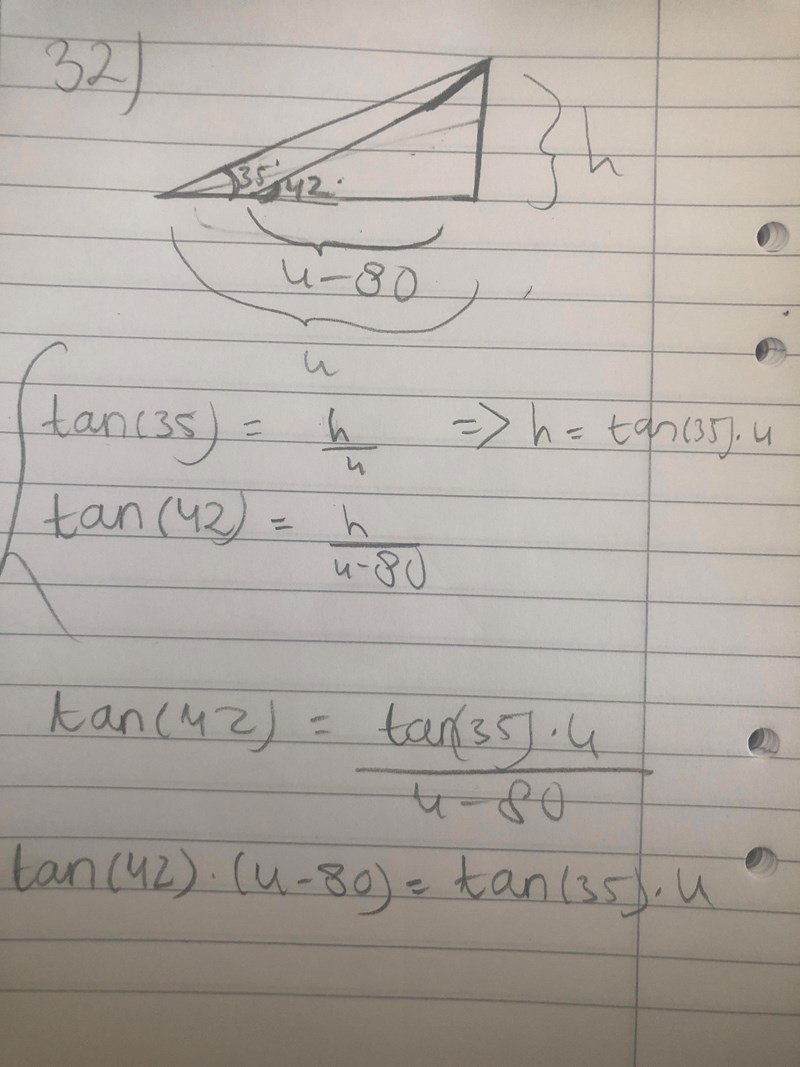 32)
h
35°
42°
u-80
u
tan(35) = h/u => h = tan(35).u
tan(42) = h/u-80
tan(42) = tan(35).u/u-80
tan(42).(u-80) = tan(35).u